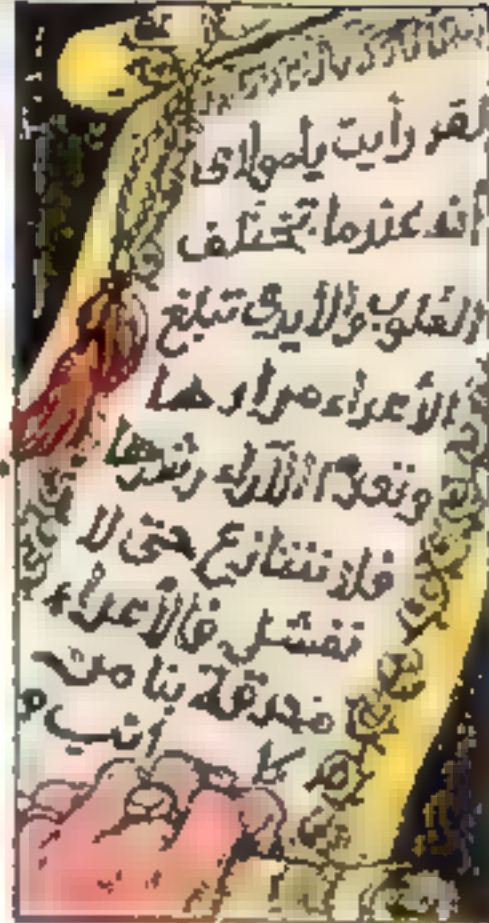 لقد رأيت يا مولاى
أنه عندما تختلف
القلوب والأيدى تبلغ
الأعداء مرادها
وتعدم الآراء رشدها
فلا نتنازع حتى لا
نفشل فالأعداء
محدقة بنا من
كل